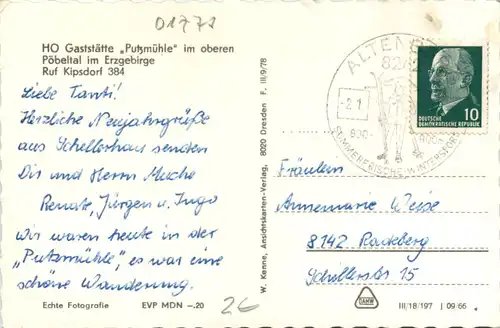 01772
HO Gaststätte „Putzmühle" im oberen
Pöbeltal im Erzgebirge
Ruf Kipsdorf 384
Liebe Tanti!
Herzliche Neujahrsgrüße
aus Schellerhau senden
Dir und Herrn Muche
Renate, Jürgen u. Ingo
Wir waren heute in der
„Putzmühle", es war eine
schöne Wanderung.
Echte Fotografie EVP MDN —.20
26
W. Kenne, Ansichtskarten-Verlag, 8020 Dresden F. III/9/78
ALTEN
-2.1
SOMMERFRISCHE
DEUTSCHE
DEMOKRATISCHE REPUBLIK
10
Fräulein
Annemarie Weise
8142 Radeberg
Schillerstr. 15
III/18/197 J 09/66